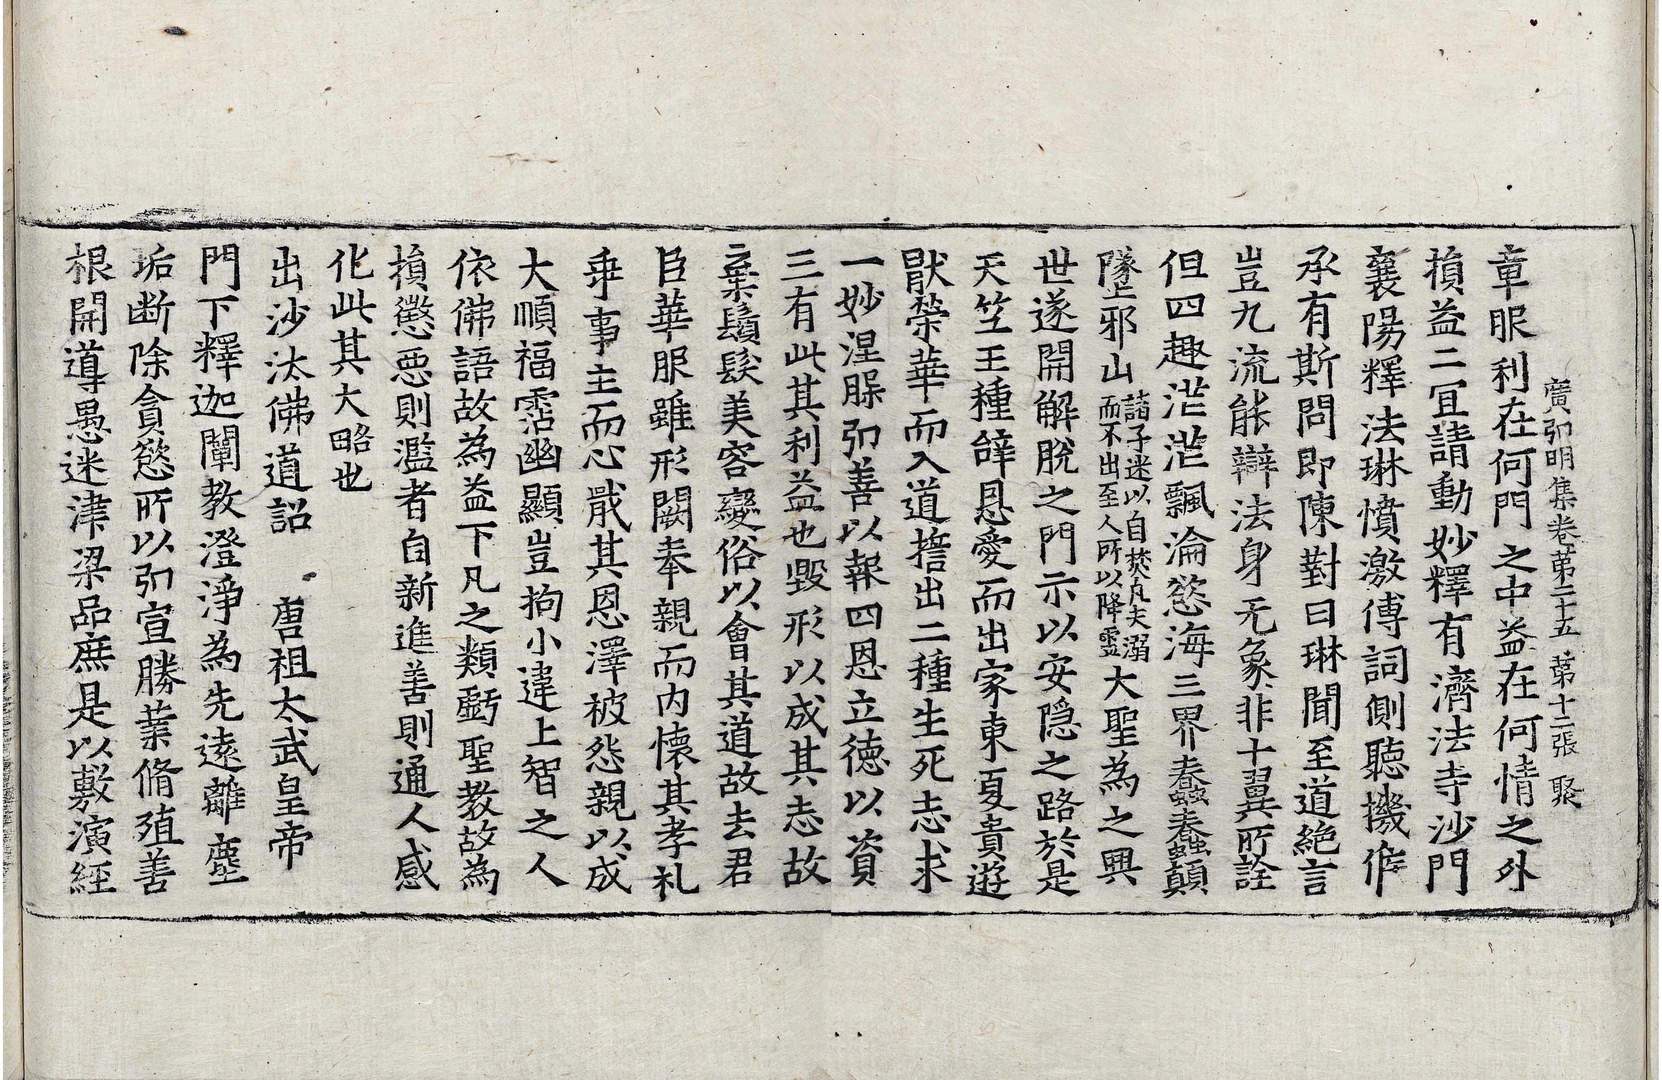 廣弘明集卷第二十五 第十二張 聚
章服利在何門之中益在何情之外
損益二宜請動妙釋有濟法寺沙門
襄陽釋法琳憤激傅詞側聽機候
承有斯問即陳對曰琳聞至道絕言
豈九流能辯法身无象非十翼所詮
但四趣茫茫飄淪慾海三界蠢蠢顛
墜邪山諸子迷以自焚凡夫溺
而不出至人所以降靈大聖為之興
世遂開解脫之門示以安隱之路於是
天竺王種辭恩愛而出家東夏貴遊
猒榮華而入道擔出二種生死志求
一妙涅槃弘善以報四恩立德以資
三有此其利益也毀形以成其志故
棄鬚髮美容變俗以會其道故去君
臣華服雖形闕奉親而內懷其孝礼
乖事主而心戢其恩澤被怨親以成
大順福霑幽顯豈拘小違上智之人
依佛語故為益下凡之類虧聖教故為
損懲惡則濫者自新進善則通人感
化此其大略也
出沙汰佛道詔 唐祖太武皇帝
門下釋迦闡教澄淨為先遠離塵
垢斷除貪慾所以弘宣勝業脩殖善
根開導愚迷津梁品庶是以敷演經